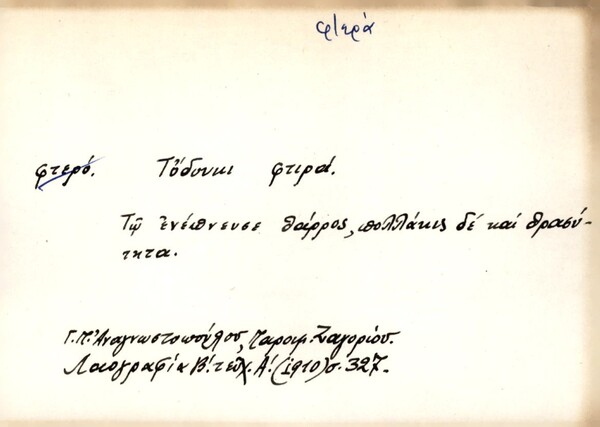 φτερά
φτερό. Τὄδουκι φτιρά.
Τῷ ἐνέπνευσε θάρρος, πολλάκις δέ καί θρασύ-
τητα.
Γ.Π. Ἀναγνωστοπούλου, Παροιμ. Ζαγορίου.
Λαογραφία Β΄. τεῦχ. Α΄. (1910) σ. 327.